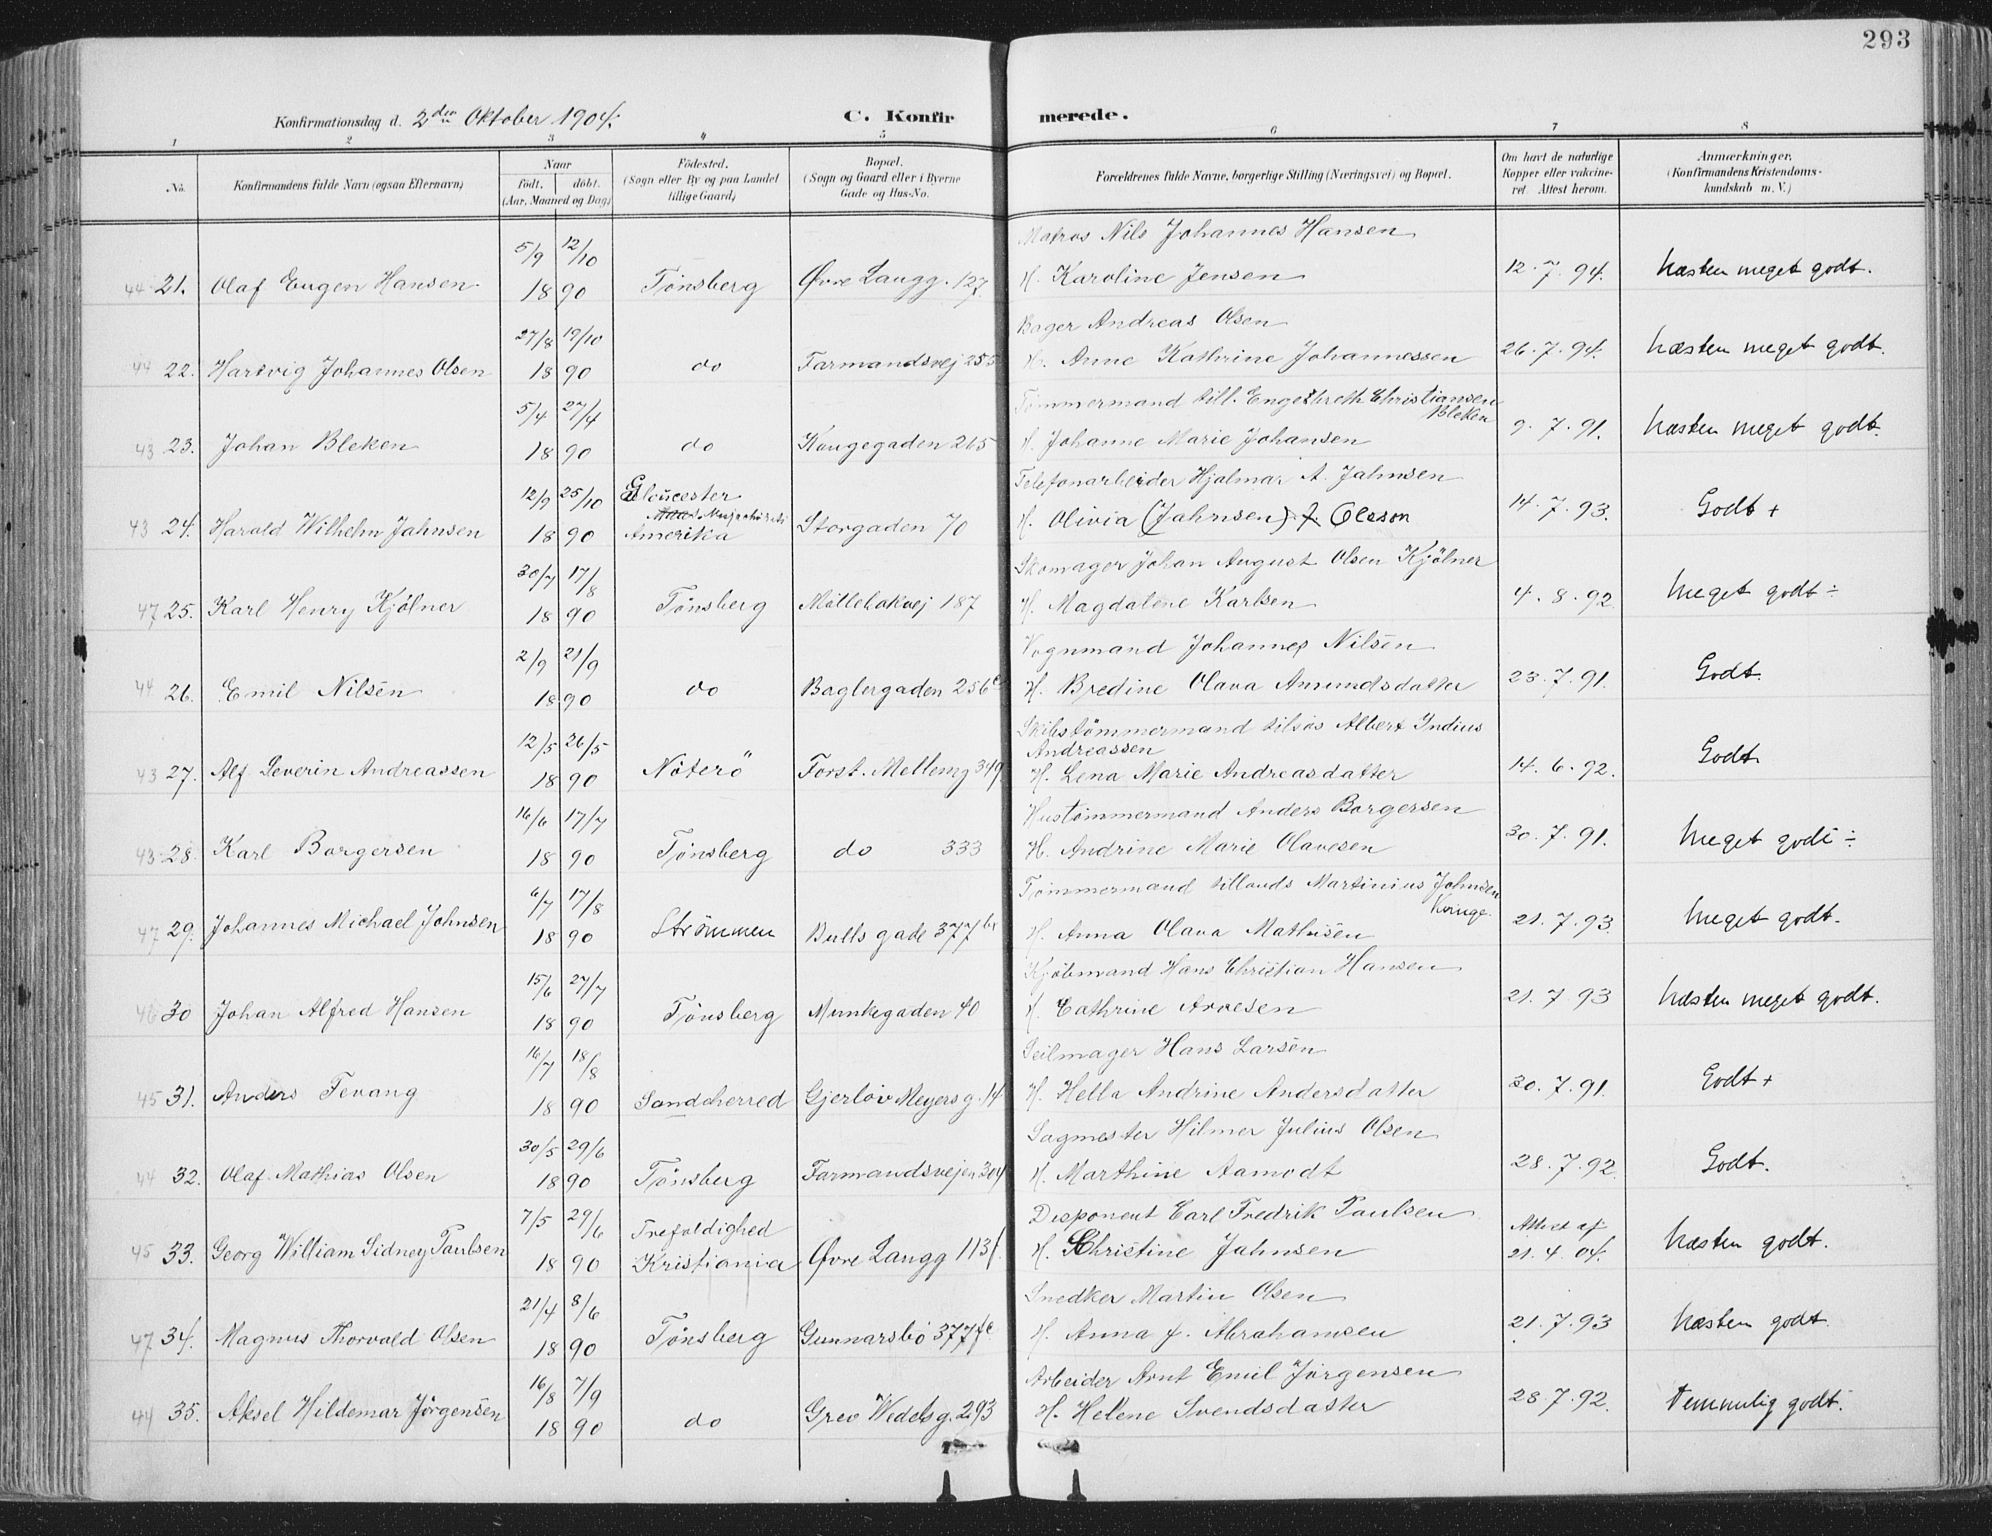 293
Konfirmationsdag d. 2den Oktober 1904.
C. Konfirmerede.
1 2 3 4 5 6 7 8
No. Konfirmandens fulde Navn (ogsaa Efternavn)
Naar födt. döbt. (Aar, Maaned og Dag)
Födested. (Sogn eller By og paa Landet tillige Gaard)
Bopæl. (Sogn og Gaard eller i Byerne Gade og Hus-No.
Forældrenes fulde Navne, borgerlige Stilling (Næringsvei) og Bopæl.
Om havt de naturlige Kopper eller vakcineret. Attest herom.
Anmærkninger. (Konfirmandens Kristendomskundskab m. V.)
5/9 12/10 Matros Nils Johannes Hansen
44 21. Olaf Eugen Hansen 18 90 Tønsberg Øvre Langg. 127. H. Karoline Jensen 12.7.94. Næsten meget godt.
27/8 19/10 Bager Andreas Olsen
44 22. Hartvig Johannes Olsen 18 90 do Farmandsvej 255 H. Anne Kathrine Johannessen 26.7.94. Næsten meget godt.
5/4 27/4 Tömmermand till. Engelbreth Christiansen Bleken
43 23. Johan Bleken 18 90 do Kongegaden 265 H. Johanne Marie Johansen 9.7.91. Næsten meget godt.
12/9 25/10 Gloucester Telefonarbeider Hjalmar A. Jahnsen
43 24. Harald Wilhelm Jahnsen 18 90 Amerika Storgaden 70 H. Olivia (Jahnsen) f. Olsson 14.7.93. Godt +
30/7 17/8 Skomager Johan August Olsen Kjölner
47 25. Karl Henry Kjölner 18 90 Tønsberg Möllebakvej 187 H. Magdalene Karlsen 4.8.92 Meget godt ÷
2/9 21/9 Vognmand Johannes Nilsen
44 26. Emil Nilsen 18 90 do Baglergaden 256 c H. Bredine Olava Amundsdatter 23.7.91. Godt.
12/5 26/5 Skibstömmermand tilsös Albert Indius Andreassen
43 27. Alf Severin Andreassen 18 90 Nöterö Forst. Mellemg 349 H. Lena Marie Andreasdatter 14.6.92. Godt
16/6 17/7 Hustömmermand Anders Borgersen
43 28. Karl Borgersen 18 90 Tønsberg do 333 H. Andrine Marie Olavesen 30.7.91. Meget godt ÷
6/7 17/8 Tömmermand tillands Martinius Johnsen Kringe.
47 29. Johannes Michael Johnsen 18 90 Strömmen Bulls gade 377 H. Anna Olava Mathisen 21.7.93. Meget godt.
15/6 27/7 Kjöbmand Hans Christian Hansen
46 30 Johan Alfred Hansen 18 90 Tønsberg Munkegaden 40 H. Cathrine Arvesen 21.7.93 Næsten meget godt.
16/7 18/8 Seilmager Hans Larsen
45 31. Anders Tevang 18 90 Sandeherred Gjerløv Meyersg. 14 H. Hella Andrine Andersdatter 30.7.91. Godt +
30/5 29/6 Sagmester Hilmer Julius Olsen
44 32. Olaf Mathias Olsen 18 90 Tønsberg Farmandsvejen 304 H. Marthine Aamodt 28.7.92. Godt.
7/5 29/6 Trefoldighed Disponent Carl Fredrik Paulsen Attest af
45 33. Georg William Sidney Paulsen 18 90 Kristiania Øvre Langg 113 f. H. Christine Jahnsen 21.4.04. Næsten godt.
21/4 8/6 Snedker Martin Olsen
47 34. Magnus Thorvald Olsen 18 90 Tønsberg Gunnarsbö 377 H. Anna J. Abrahamsen 21.7.93 Næsten godt.
16/8 7/9 Arbeider Arnt Emil Jörgensen
44 35. Aksel Hildemar Jörgensen 18 90 do Grev Wedelsg. 293 H. Helene Svendsdatter 28.7.92. Temmelig godt.